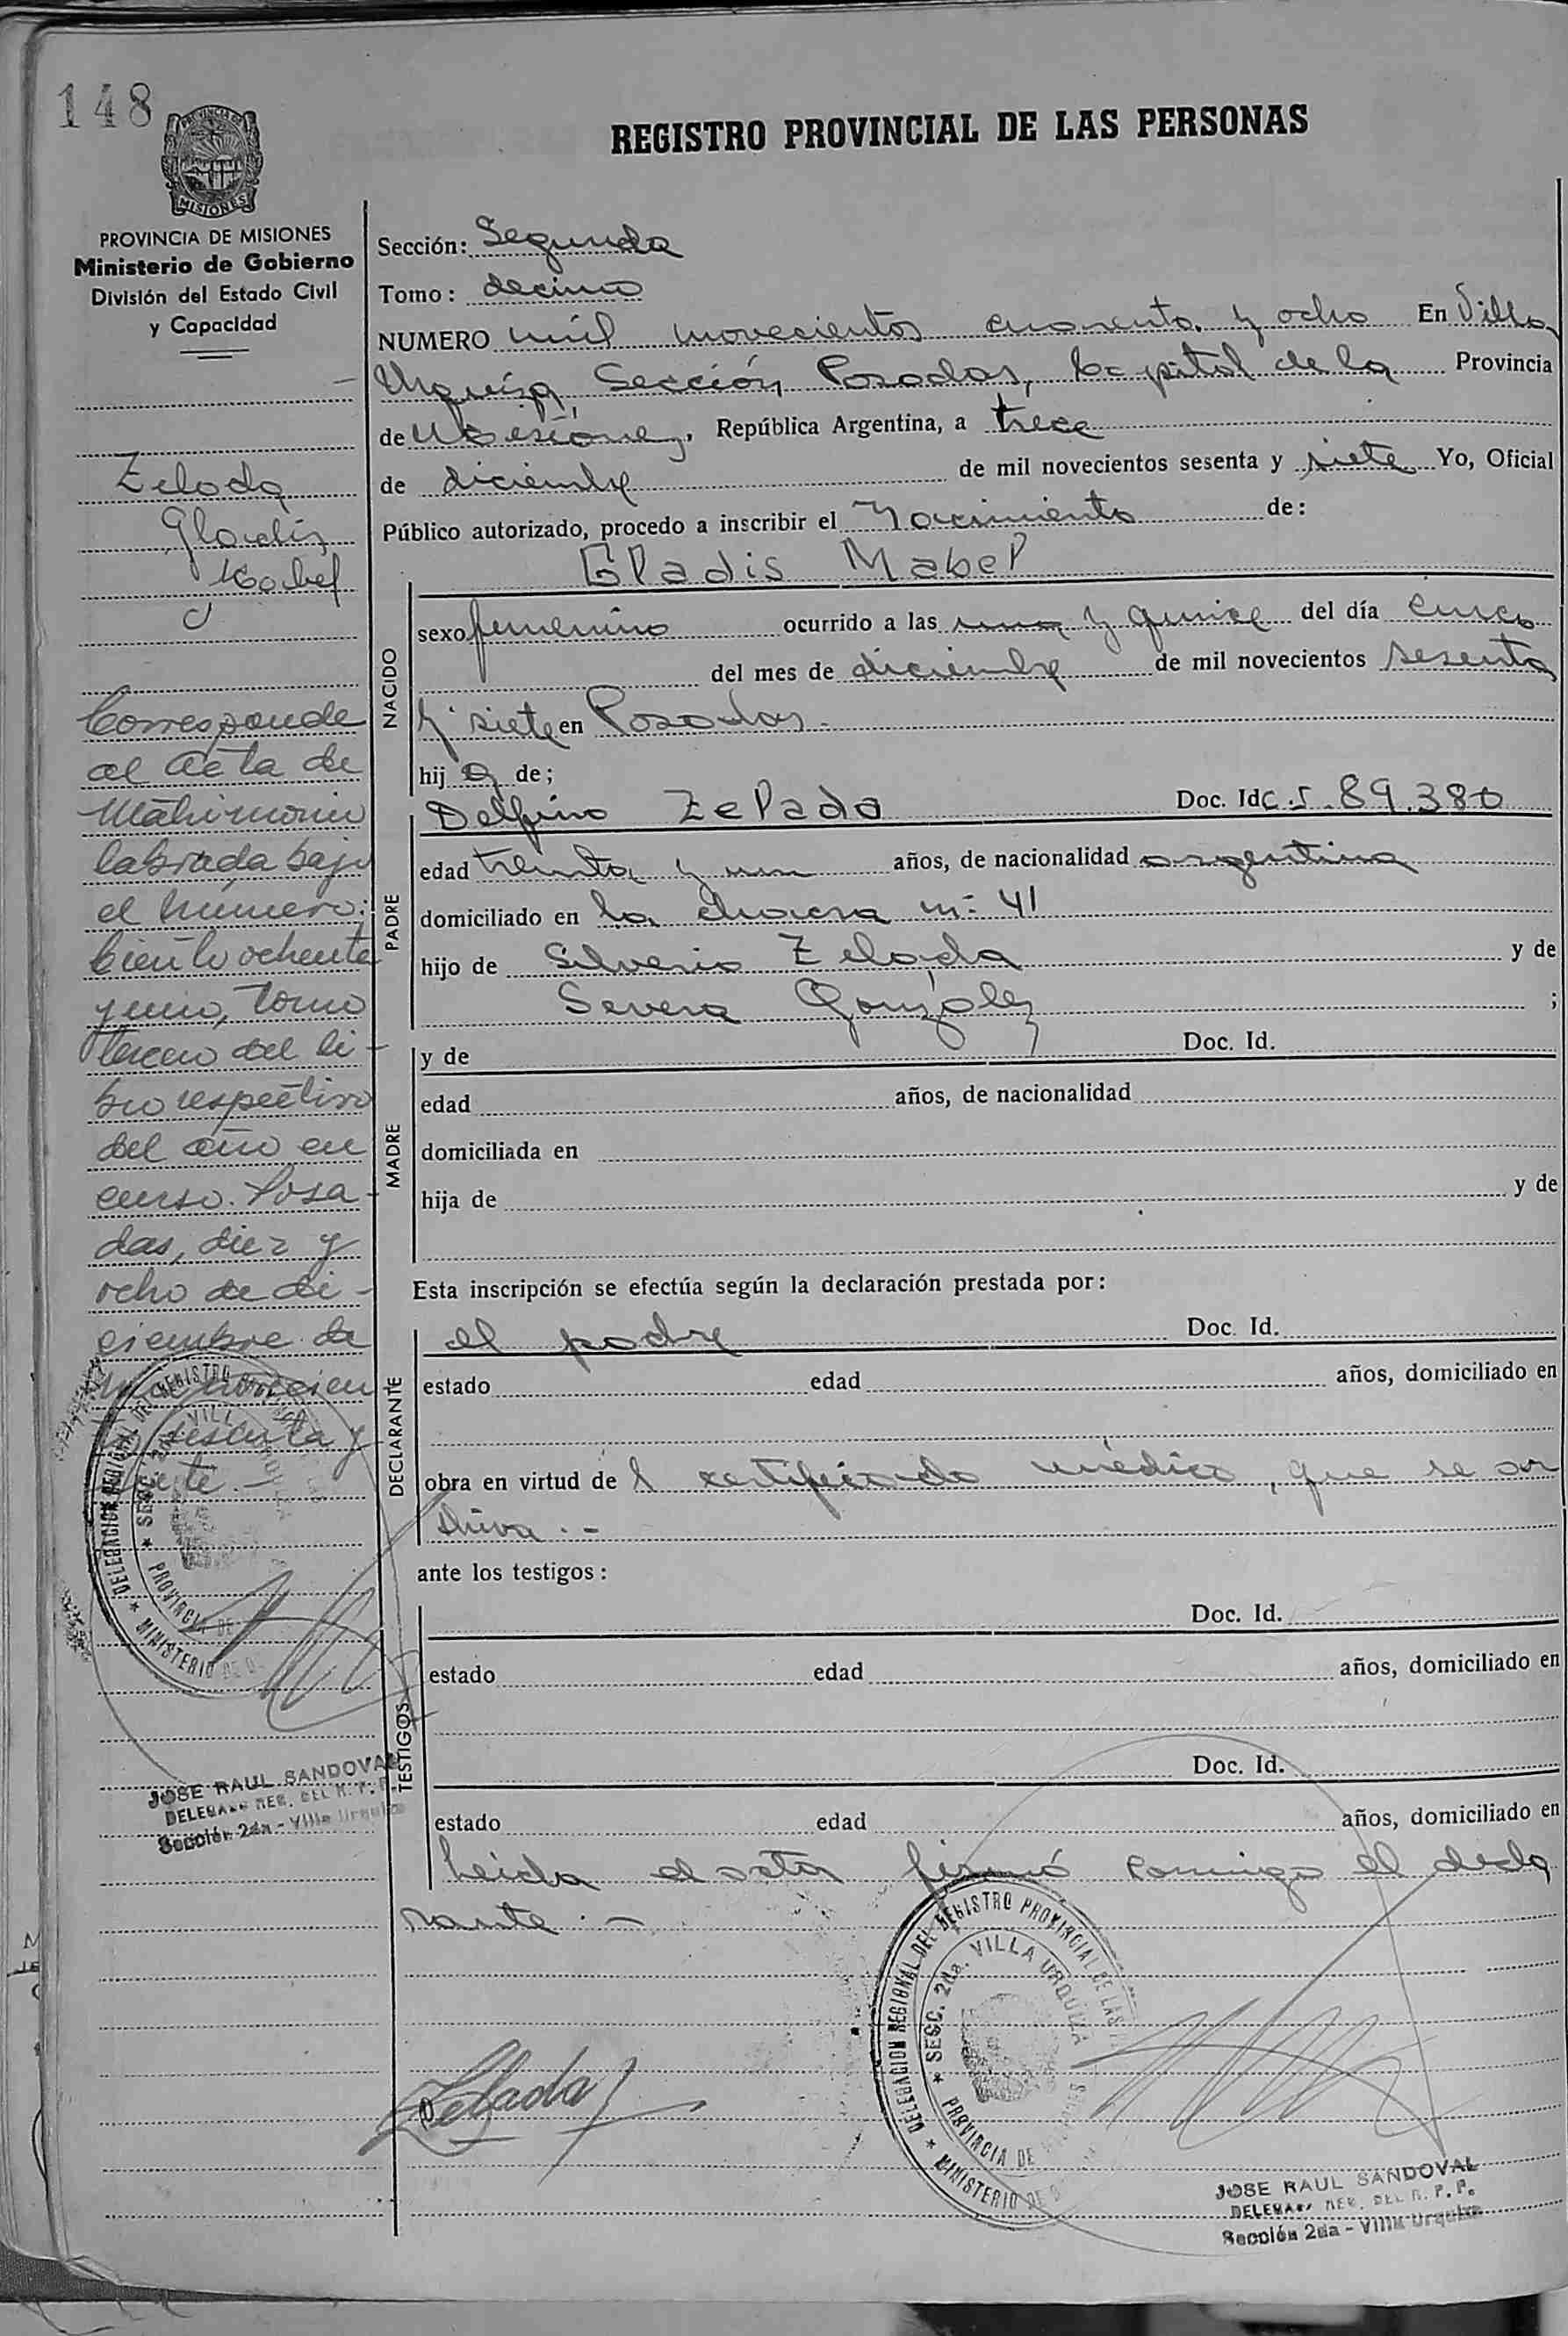 148
PROVINCIA DE
MISIONES
REGISTRO PROVINCIAL DE LAS PERSONAS
PROVINCIA DE MISIONES
Ministerio de Gobierno
División del Estado Civil
y Capacidad
Zelada
Gladis
Mabel
Corresponde
al acta de
Matrimonio
labrada bajo
el número:
Ciento ochenta
y uno, tomo
tercero del li-
bro respectivo
del año en
curso. Posa-
das, diez y
ocho de di-
ciembre de
mil novecien
tos sesenta y
siete.-
DELEGACION REGIONAL DEL REGISTRO
SECC. 2da. VILLA
PROVINCIA DE
MINISTERIO DE
JOSE RAUL SANDOVAL
DELEGADO REG. DEL R. P. P.
Sección 2da - Villa Urquiza
Sección: Segunda
Tomo: decimo
NUMERO mil novecientos cuarenta y ocho En Villa
Urquiza, Sección Posadas, Capital de la Provincia
de Misiones, República Argentina, a trece
de diciembre de mil novecientos sesenta y siete Yo, Oficial
Público autorizado, procedo a inscribir el Nacimiento de:
Gladis Mabel
NACIDO
sexo femenino ocurrido a las una y quince del día cinco
del mes de diciembre de mil novecientos sesenta
y siete en Posadas.-
hij a de;
PADRE
Delfino Zelada Doc. Id C.I. 89.380
edad treinta y un años, de nacionalidad argentina
domiciliado en la chacra nº 41
hijo de Silverio Zelada y de
Severa González ;
MADRE
y de Doc. Id.
edad años, de nacionalidad
domiciliada en
hija de y de
Esta inscripción se efectúa según la declaración prestada por:
DECLARANTE
el padre Doc. Id.
estado edad años, domiciliado en
obra en virtud de l certificado médico, que se ar
chiva.-
ante los testigos:
TESTIGOS
Doc. Id.
estado edad años, domiciliado en
Doc. Id.
estado edad años, domiciliado en
Leída el acta firmó conmigo el decla
rante.-
DELEGACION REGIONAL DEL REGISTRO PROVINCIAL DE LAS
SECC. 2da. VILLA URQUIZA
PROVINCIA DE MISIONES
MINISTERIO DE
Zelada
JOSE RAUL SANDOVAL
DELEGADO REG. DEL R. P. P.
Sección 2da - Villa Urquiza